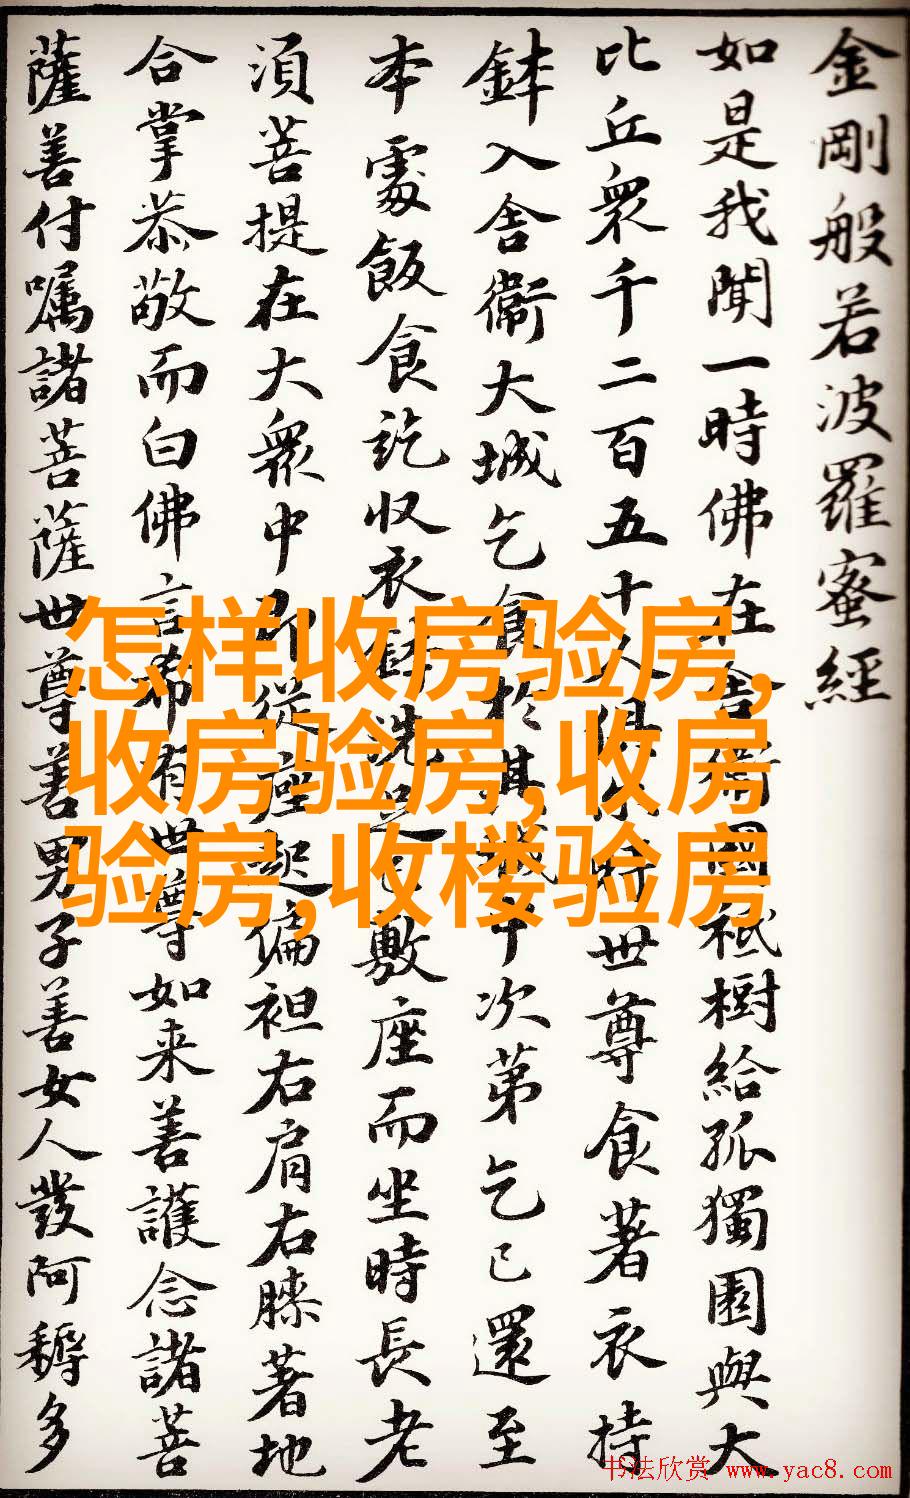 金剛般若波羅蜜經
如是我聞一時佛在舍衛國祇樹給孤獨園與大
比丘衆千二百五十人俱尒時世尊食著衣持
鉢入舍衛大城乞食於其城中次第乞已還至
本處飯食訖收衣鉢洗足已敷座而坐時長老
須菩提在大衆中即從座起偏袒右肩右膝著地
合掌恭敬而白佛言希有世尊如来善護念諸菩
薩善付嘱諸菩薩世尊善男子善女人發阿耨多
怎样收房验房,
收房验房,收房
验房,收楼验房
书法欣赏 www.yac8.com